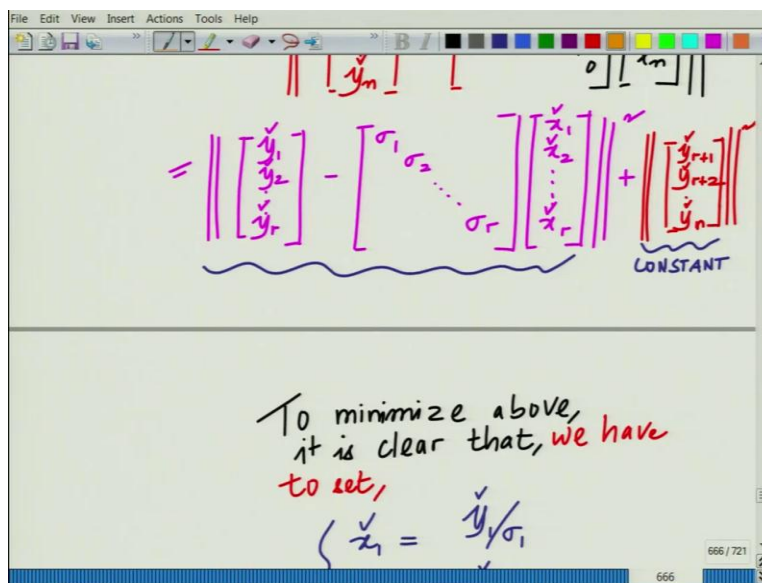 File Edit View Insert Actions Tools Help
B I
y̌n
0
= || [ y̌1 y̌2 y̌r ] - [ σ1 σ2 ⋱ σr ] [ x̌1 x̌2 ⋮ x̌r ] ||² + || [ y̌r+1 y̌r+2 ⋮ y̌n ] ||²
CONSTANT
To minimize above,
it is clear that, we have
to set,
{ x̌1 = y̌1/σ1
666 / 721
666